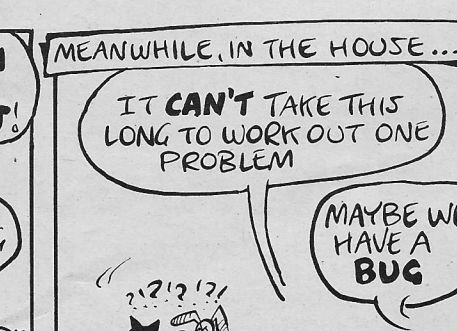 MEANWHILE, IN THE HOUSE...
IT CAN'T TAKE THIS
LONG TO WORK OUT ONE
PROBLEM
MAYBE WE
HAVE A
BUG
?!?!?!?!